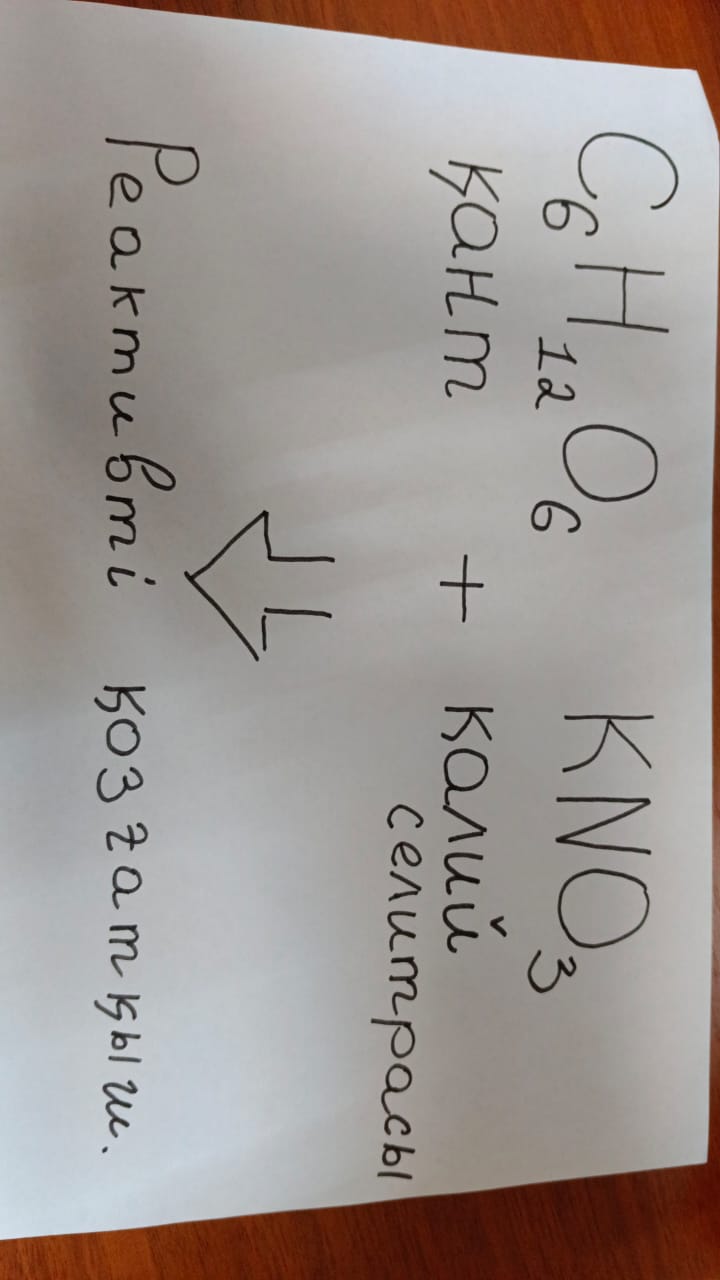 C₆H₁₂O₆ KNO₃
қант + калий
селитрасы
Реактивті қозғатқыш.